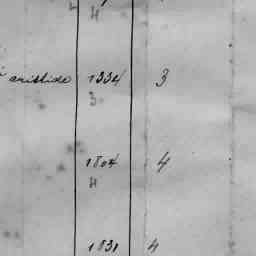 4
1334 3
3
1804 4
4
1831 4